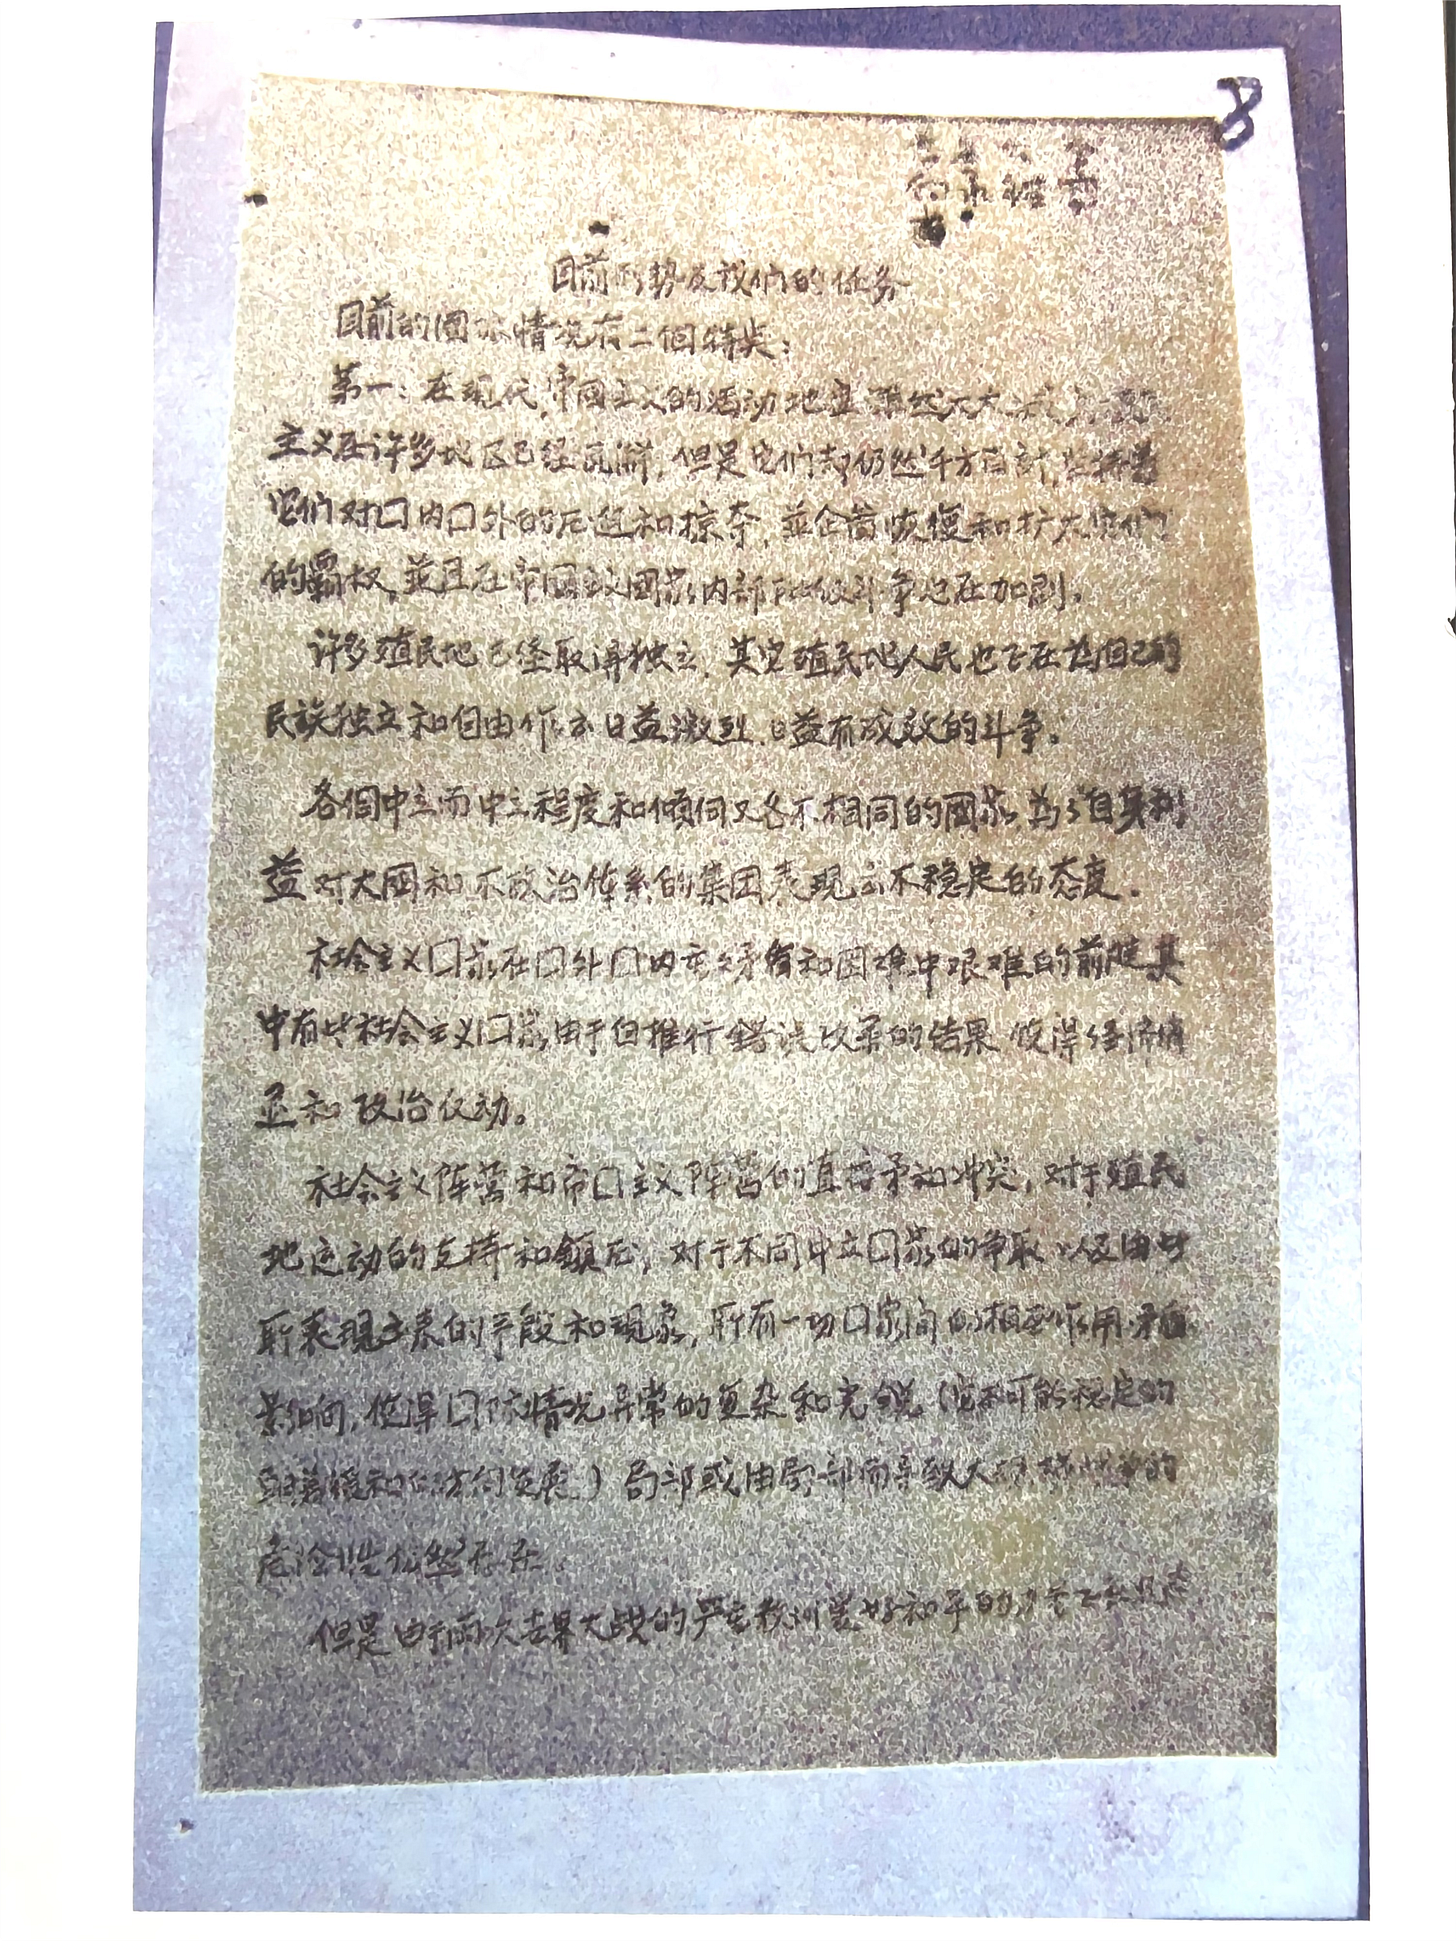 8
目前形势及我们的任务
目前的國际情况有二個特点：
第一：在现代，帝国主义的活动地盘虽然大大
主义在许多地区已经瓦解，但是它们却仍然千方百計，坚持着
它们对口内口外的压迫和掠夺，並企啚恢復和扩大它们
的霸权，並且在帝国主义國家内部阶级斗争也在加剧。
许多殖民地已经取得独立，其它殖民地人民也正在为自己的
民族独立和自由作出日益激烈，日益有成效的斗争。
各個中立而中立程度和倾向又各不相同的國家，为了自身利
益对大國和不政治体系的集团表现出不稳定的态度。
社会主义口家在口外口内重重矛盾和困难中艰难的前进，其
中有些社会主义口家由于自推行錯误政策的结果 使得经济
和政治仅动。
社会主义阵营和帝口主义阵营的直接矛和冲突，对于殖民
地运动的支持和鎮压，对于不同中立口家的争取，以及由此
所表现出来的手段和现象，所有一切口家间的相互作用，矛盾
影响，使得口际情况异常的复杂和尖锐（它不可能稳定的
朝着缓和的方向发展）局部或由局部而导致大规模战争的
危险性仍然存在。
但是由于两次世界大战的严重教训爱好和平的力